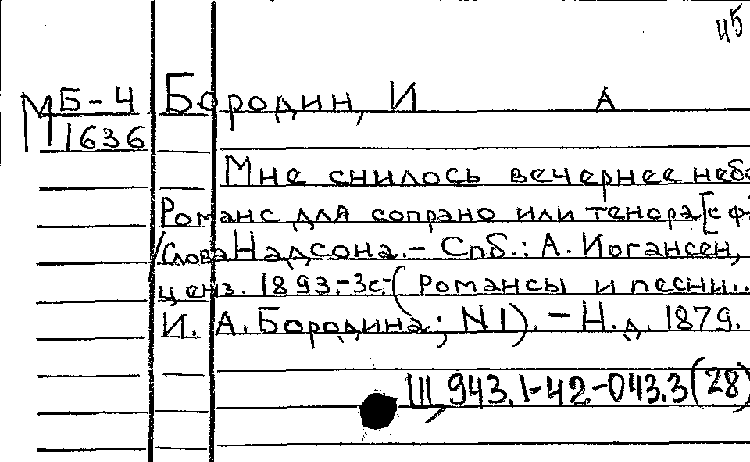 45
М Б-4 Бородин, И А
1636
Мне снилось вечернее небо
Романс для сопрано или тенора [с ф
Слова Надсона. - Спб.: А. Иогансен,
ценз. 1893. - 3с. - (Романсы и песни..
И. А. Бородина; N 1). - Н.д. 1879.
Ш 943.1-42-043.3(28)